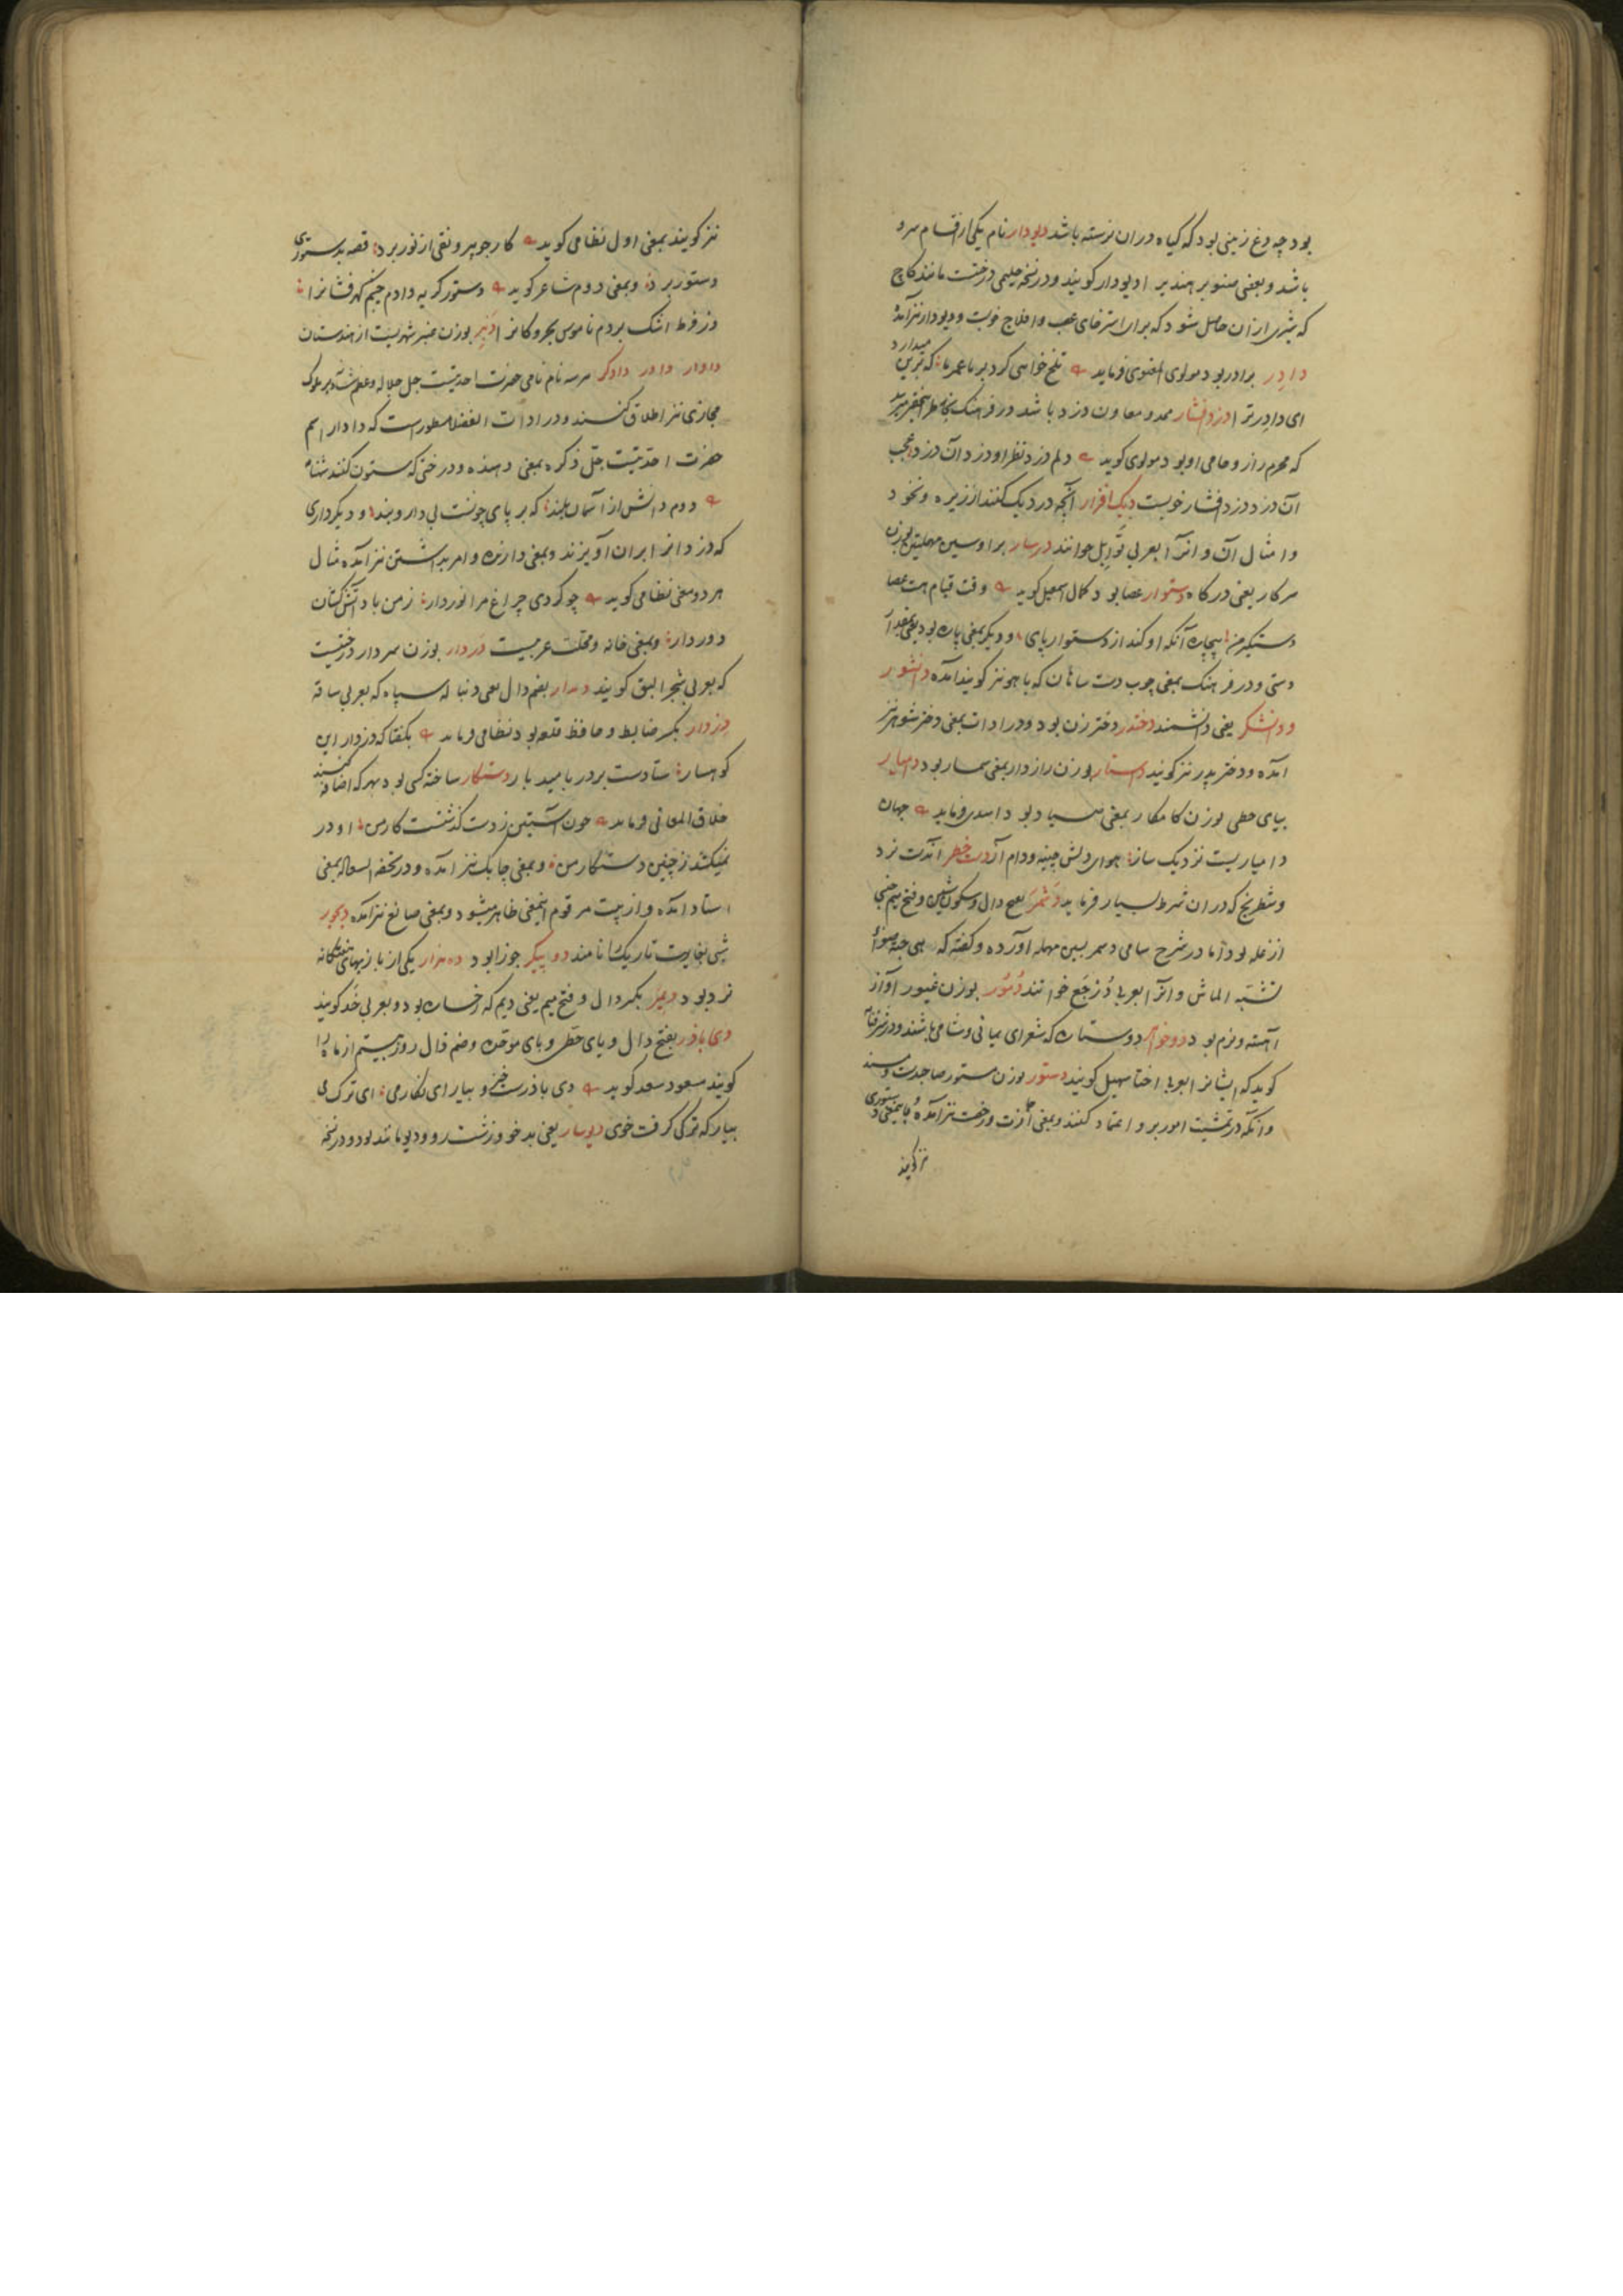 بود چه دغ زمینی بود که گیاه دران نرسته باشد دیودار نام یکی از اقسام سرو
باشد و بعضی صنوبر هندیرا دیودار گویند و در نسخه حلیمی درختست مانند کاج
که شیری ازان حاصل شود که برای استرخای عصب و افلاج خوبست و دیودار نیز آمده
دادر برادر بود مولوی المعنوی فرماید تلخ خواهی کرد بر ما عمر ما که برین میدارد
ای دادر ترا دزدافشار ممد و معاون دزد باشد در فرهنگ بخاطر میرسد
که محرم راز و حامی او بود مولوی گوید دلم دزد نظر او دزد آن دزد عجب
آن دزد دزدافشار خویست دیک افزار آنچه در دیک کنند از زیره و نخود
و امثال آن و آنرا بعربی توابل خوانند درسار برا و سین مهملتین بوزن
سرکار یعنی درگاه دستوار عصا بود کمال اسمعیل گوید وقت قیام هست عصا
دستگیر من بیچاره آنکه او کند از دستوار پای و دیگر بمعنی یاره بود
دستی و در فرهنگ بمعنی چوب دست که باهو نیز گویند آمده دانشور
و دانشگر یعنی دانشمند دختدر دختر زن بود و در ادات بمعنی دختر شوهر نیز
آمده و دختر پدر نیز گویند داستار بوزن رازدار بمعنی سمسار بود دامیار
بیای حطی بوزن کامکار بمعنی صیاد بود اسدی فرماید جهان
دامیاریست نزدیک ساز هوای دلش چینه و دام آز دست خطر آنست نرد
و شطرنج که دران شرط بسیار فرماید دشمر بفتح دال و سکون شین و فتح میم جنسی
از غله بود اما در شرح سامی دسمر بسین مهمله آورده و گفته که هی حبة
تشبه الماش و آنرا بعربی خوانند دنور بوزن غیور آواز
آهسته و نرم بود دوخواهر دو ستاره که شعرای یمانی و شامی باشند و در
گوید که ایشانرا بعربی اختا سهیل گویند دستور بوزن مستور صاحب دست و مسند
و آنکه در تمشیت امور برو اعتماد کنند و بمعنی اجازت و رخصت نیز آمده و باینمعنی دستوری
نیز گویند
نیز گویند بمعنی اول نظامی گوید کار جوهر و نقی از نور برد قصه بدستوری
دستور برد و بمعنی دوم شاعر گوید دستور گریه دادم چشم گهرفشانرا
وز فرط اشک بردم ناموس بحر و کانرا دنبر بوزن عنبر شهریست از هندستان
دادار داور دادگر هر سه نام نامی حضرت احدیتست جل جلاله و عظم شانه و بر ملوک
مجازی نیز اطلاق کنند و در ادات الفضلا مسطور است که دادار اسم
حضرت احدیتست جل ذکره بمعنی دهنده و درختی که ستون کنند
دوم دانش از آسمان بلند که بر پای چونست بی دار و بند و دیگر داری
که دزدانرا بران آویزند و بمعنی دارنده و امر بداشتن نیز آمده مثال
هر دو معنی نظامی گوید چو کردی چراغ مرا نوردار ز من باد آتش کشان
دوردار و بمعنی خانه و محلت عربیست دردار بوزن سردار درختیست
که بعربی شجر البق گویند دمدار بضم دال یعنی دنباله سپاه که بعربی ساقه
دزدار بکسر ضابط و حافظ قلعه بود نظامی فرماید بگفتا که دزدار این
کوهسار ستادست بر در بامید بار دستکار ساخته کسی بود بهر که اضافه کنند
خلاق المعانی فرماید چون آستین ز دست گذشتست کار من او در
نمیکشد ز چنین دستکار من و بمعنی چابک نیز آمده و در تحفه السعاده بمعنی
استاد آمده و از بیت مرقوم اینمعنی ظاهر میشود و بمعنی صانع نیز آمده دیجور
شبی بغایت تاریک را نامند دوپیکر جوزا بود ده هزار یکی از بازیهای هفتگانه
نرد بود دیمر بکسر دال و فتح میم یعنی دیم که رخساره بود و بعربی خد گویند
دی باذر بفتح دال و یای حطی و بای موحده و ضم ذال روز هشتم از ماه را
گویند مسعود سعد گوید دی باذرست خیز و بیار ای نگار می ای ترک می
بیار که ترکی گرفت خوی دیوسار یعنی بدخو و زشت رو و دیو مانند بود و در نسخه